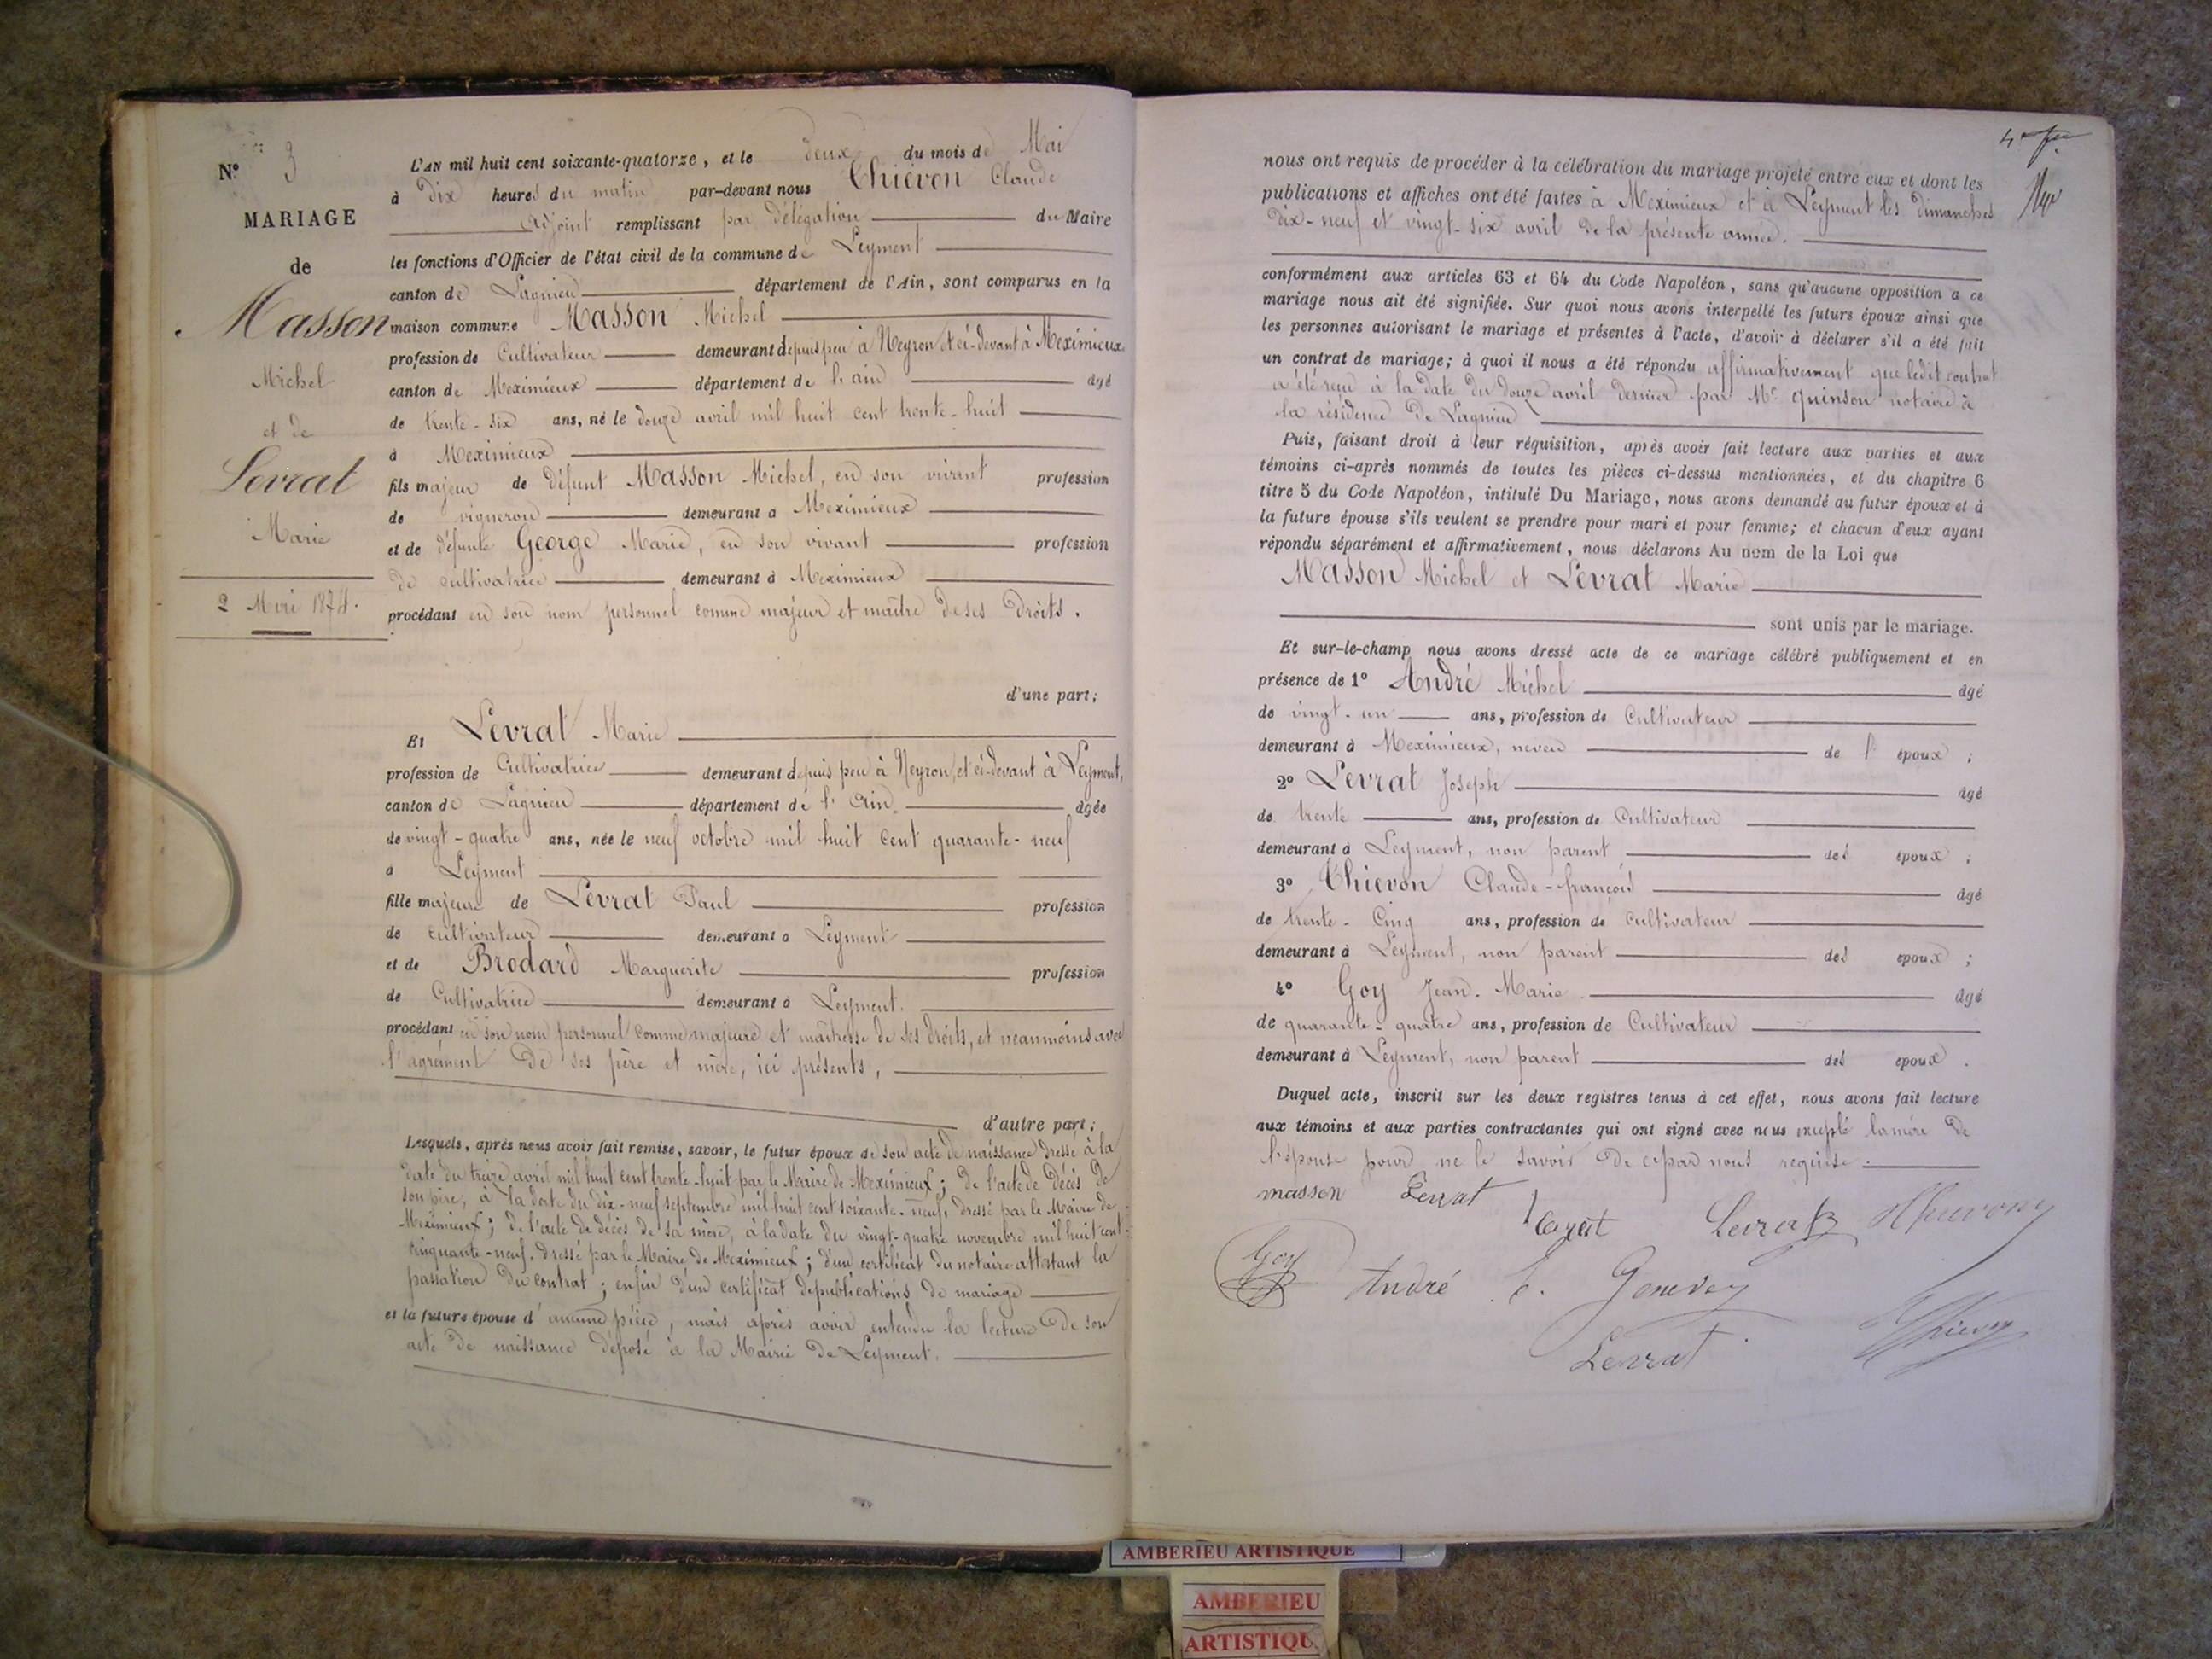 N° 3
MARIAGE
de
Masson
Michel
et de
Levrat
Marie
2 Mai 1874.
L'AN mil huit cent soixante-quatorze, et le deux du mois de Mai
à dix heures du matin par-devant nous Thiévon Claude
Adjoint remplissant par délégation du Maire
les fonctions d'Officier de l'état civil de la commune de Leyment
canton de Lagnieu département de l'Ain, sont comparus en la
maison commune Masson Michel
profession de Cultivateur demeurant depuis peu à Neyron et ci-devant à Meximieux
canton de Meximieux département de l'ain âgé
de trente-six ans, né le douze avril mil huit cent trente-huit
à Meximieux
fils majeur de défunt Masson Michel, en son vivant profession
de vigneron demeurant a Meximieux
et de défunte George Marie, en son vivant profession
de cultivatrice demeurant à Meximieux
procédant en son nom personnel comme majeur et maître de ses droits.
d'une part;
Et Levrat Marie
profession de Cultivatrice demeurant depuis peu à Neyron, et ci-devant à Leyment,
canton de Lagnieu département de l'Ain âgée
de vingt-quatre ans, née le neuf octobre mil huit cent quarante-neuf
à Leyment
fille majeure de Levrat Paul profession
de cultivateur demeurant a Leyment
et de Brodard Marguerite profession
de Cultivatrice demeurant à Leyment.
procédant en son nom personnel comme majeure et maîtresse de ses droits, et néanmoins avec
l'agrément de ses père et mère, ici présents,
d'autre part;
Lesquels, après nous avoir fait remise, savoir, le futur époux de son acte de naissance dressé à la
date du treize avril mil huit cent trente-huit par le Maire de Meximieux; de l'acte de décès de
son père, à la date du dix-neuf septembre mil huit cent soixante-neuf, dressé par le Maire de
Meximieux; de l'acte de décès de sa mère, à la date du vingt-quatre novembre mil huit cent
cinquante-neuf, dressé par le Maire de Meximieux; d'un certificat du notaire attestant la
passation du contrat; enfin d'un certificat de publications de mariage
et la future épouse d'aucune pièce, mais après avoir entendu la lecture de son
acte de naissance déposé à la Mairie de Leyment.
nous ont requis de procéder à la célébration du mariage projeté entre eux et dont les
publications et affiches ont été faites à Meximieux et à Leyment les dimanches
dix-neuf et vingt-six avril de la présente année.
conformément aux articles 63 et 64 du Code Napoléon, sans qu'aucune opposition a ce
mariage nous ait été signifiée. Sur quoi nous avons interpellé les futurs époux ainsi que
les personnes autorisant le mariage et présentes à l'acte, d'avoir à déclarer s'il a été fait
un contrat de mariage; à quoi il nous a été répondu affirmativement que ledit contrat
a été reçu à la date du douze avril dernier par Me Quinson notaire à
la résidence de Lagnieu
Puis, faisant droit à leur réquisition, après avoir fait lecture aux parties et aux
témoins ci-après nommés de toutes les pièces ci-dessus mentionnées, et du chapitre 6
titre 5 du Code Napoléon, intitulé Du Mariage, nous avons demandé au futur époux et à
la future épouse s'ils veulent se prendre pour mari et pour femme; et chacun d'eux ayant
répondu séparément et affirmativement, nous déclarons Au nom de la Loi que
Masson Michel et Levrat Marie
sont unis par le mariage.
Et sur-le-champ nous avons dressé acte de ce mariage célébré publiquement et en
présence de 1° André Michel âgé
de vingt-un ans, profession de Cultivateur
demeurant à Meximieux, neveu de l'époux;
2° Levrat Joseph âgé
de trente ans, profession de Cultivateur
demeurant à Leyment, non parent des époux;
3° Thiévon Claude-françois âgé
de trente-cinq ans, profession de cultivateur
demeurant à Leyment, non parent des époux;
4° Goy Jean-Marie âgé
de quarante-quatre ans, profession de Cultivateur
demeurant à Leyment, non parent des époux.
Duquel acte, inscrit sur les deux registres tenus à cet effet, nous avons fait lecture
aux témoins et aux parties contractantes qui ont signé avec nous excepté la mère de
l'épouse pour ne le savoir de ce par nous requise.
masson Levrat
Levrat Levrat Thievon
Goy André Genevey
Levrat Thievon
AMBERIEU ARTISTIQUE
AMBERIEU
ARTISTIQU